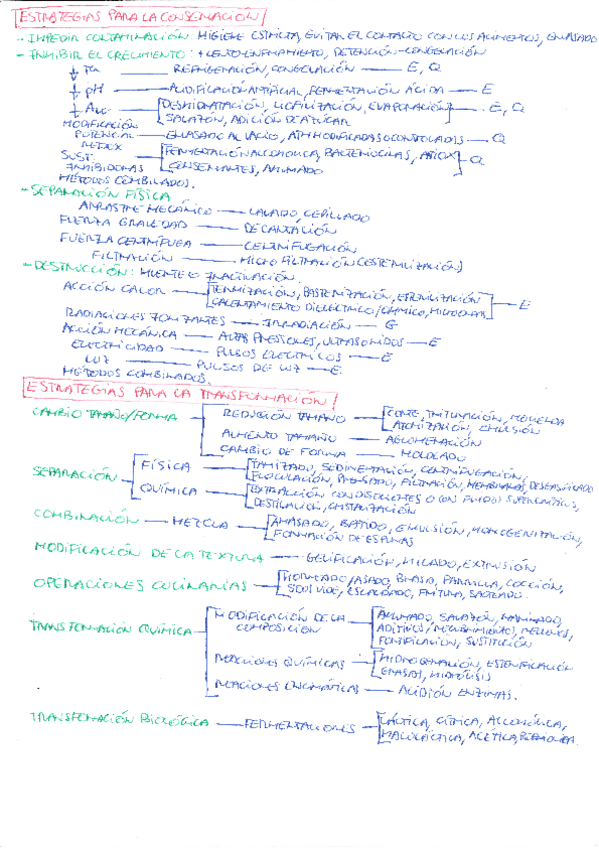 ESTRATEGIAS PARA LA CONSERVACIÓN
- IMPEDIR CONTAMINACIÓN: HIGIENE ESTRICTA, EVITAR EL CONTACTO CON LOS ALIMENTOS, ENVASADO
- INHIBIR EL CRECIMIENTO: + LENTO-ENFRIAMIENTO, DETENCIÓN-CONGELACIÓN
↓ Tª — REFRIGERACIÓN, CONGELACIÓN — E, Q
↓ pH — ACIDIFICACIÓN ARTIFICIAL, FERMENTACIÓN ÁCIDA — E
↓ Aw — DESHIDRATACIÓN, LIOFILIZACIÓN, EVAPORACIÓN — E, Q
SALAZÓN, ADICIÓN DE AZÚCAR
MODIFICACIÓN POTENCIAL REDOX — ENVASADO AL VACÍO, ATM MODIFICADAS O CONTROLADAS — Q
SUST. INHIBIDORAS — FERMENTACIÓN ALCOHOLICA, BACTERIOCINAS, — Q
CONSERVANTES, AHUMADO
MÉTODOS COMBINADOS.
- SEPARACIÓN FÍSICA
ARRASTRE MECÁNICO — LAVADO, CEPILLADO
FUERZA GRAVEDAD — DECANTACIÓN
FUERZA CENTRÍFUGA — CENTRIFUGACIÓN
FILTRACIÓN — MICROFILTRACIÓN (ESTERILIZACIÓN)
- DESTRUCCIÓN: MUERTE O INACTIVACIÓN
ACCIÓN CALOR — TERMIZACIÓN, PASTERIZACIÓN, ESTERILIZACIÓN — E
CALENTAMIENTO DIELECTRICO/OHMICO, MICROONDAS
RADIACIONES IONIZANTES — IRRADIACIÓN — G
ACCIÓN MECÁNICA — ALTAS PRESIONES, ULTRASONIDOS — E
ELECTRICIDAD — PULSOS ELÉCTRICOS — E
LUZ — PULSOS DE LUZ — E
MÉTODOS COMBINADOS.
ESTRATEGIAS PARA LA TRANSFORMACIÓN
CAMBIO TAMAÑO/FORMA — REDUCCIÓN TAMAÑO — CORTE, TRITURACIÓN, MOLIENDA
ATOMIZACIÓN, EMULSIÓN
AUMENTO TAMAÑO — AGLOMERACIÓN
CAMBIO DE FORMA — MOLDEADO
SEPARACIÓN — FÍSICA — TAMIZADO, SEDIMENTACIÓN, CENTRIFUGACIÓN,
FLOCULACIÓN, PRENSADO, FILTRACIÓN, MEMBRANAS, DESGASIFICADO
QUÍMICA — EXTRACCIÓN CON DISOLVENTES O CON FLUIDOS SUPERCRÍTICOS,
DESTILACIÓN, CRISTALIZACIÓN
COMBINACIÓN — MEZCLA — AMASADO, BATIDO, EMULSIÓN, HOMOGENEIZACIÓN,
FORMACIÓN DE ESPUMAS
MODIFICACIÓN DE LA TEXTURA — GELIFICACIÓN, HILADO, EXTRUSIÓN
OPERACIONES CULINARIAS — HORNEADO/ASADO, BRASA, PARRILLA, COCCIÓN,
SOUS VIDE, ESCALDADO, FRITURA, SALTEADO
TRANSFORMACIÓN QUÍMICA — MODIFICACIÓN DE LA COMPOSICIÓN — AHUMADO, SALAZÓN, MARINADO,
ADITIVOS/RECUBRIMIENTOS, RELLENOS,
FORTIFICACIÓN, SUSTITUCIÓN
REACCIONES QUÍMICAS — HIDROGENACIÓN, ESTERIFICACIÓN
GRASAS, HIDRÓLISIS
REACCIONES ENZIMÁTICAS — ADICIÓN ENZIMAS.
TRANSFORMACIÓN BIOLÓGICA — FERMENTACIONES — LÁCTICA, CÍTRICA, ALCOHÓLICA,
MALOLÁCTICA, ACÉTICA,